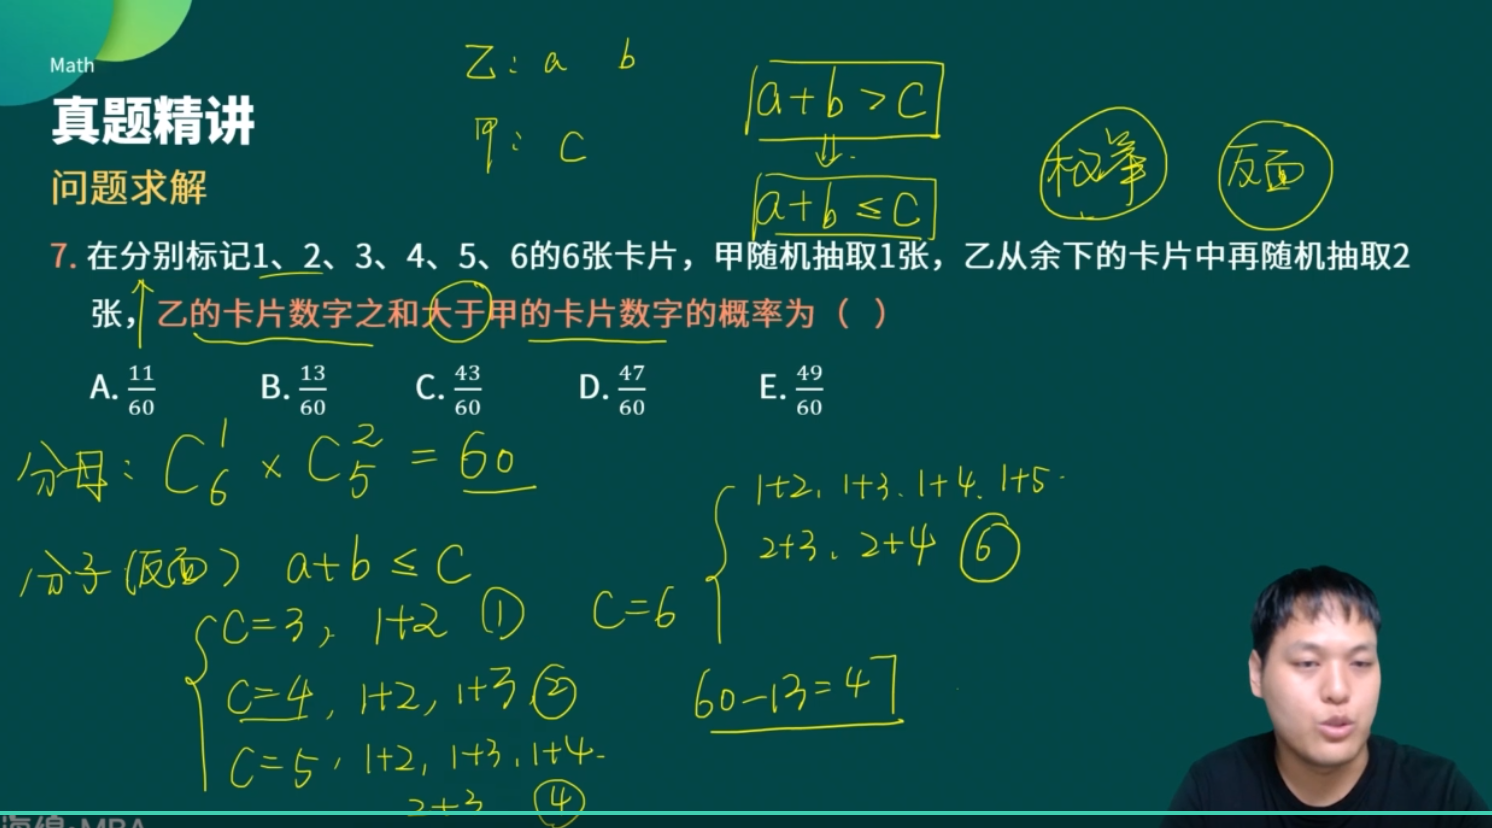 Math
真题精讲
问题求解
乙: a b
甲: C
a+b>C
⇓
a+b≤C
枚举
反面
7. 在分别标记1、2、3、4、5、6的6张卡片，甲随机抽取1张，乙从余下的卡片中再随机抽取2
张，乙的卡片数字之和大于甲的卡片数字的概率为（ ）
A. 11/60 B. 13/60 C. 43/60 D. 47/60 E. 49/60
分母: C₆¹ × C₅² = 60
分子(反面) a+b ≤ C
C=3, 1+2 ①
C=4, 1+2, 1+3 ②
C=5, 1+2, 1+3, 1+4.
2+3 ④
C=6
1+2, 1+3、1+4、1+5
2+3、2+4 ⑥
60-13=47
海绵·MBA